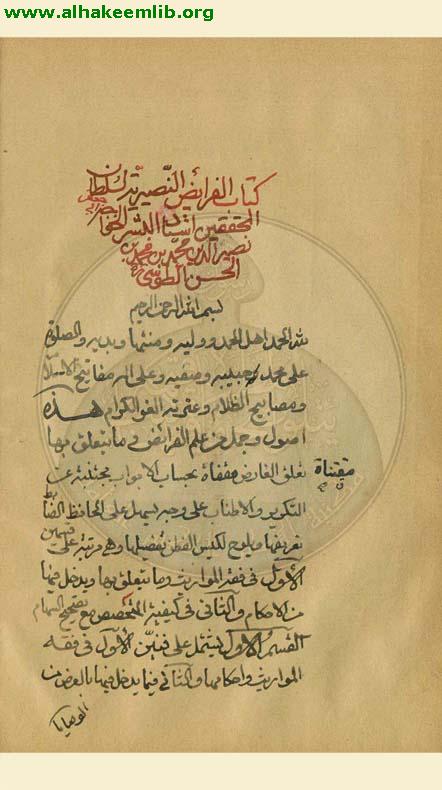 www.alhakeemlib.org
كتاب الفرائض النصيرية لسلطان
المحققين استاد البشر الخواجه
نصير الدين محمد بن محمد بن
الحسن الطوسي ره
بسم الله الرحمن الرحيم
لله الحمد اهل الحمد ووليه ومنشئها وبديه والصلوة
على محمد حبيبه وصفيه وعلى اله مفاتيح الاسلام
ومصابيح الظلام وعترته الغر الكرام هذه
اصول وجمل من علم الفرائض وما يتعلق بها
تعلق العارض مقفاة بحساب الابواب مجتنبة عن
مقتناة
التكرير والاطناب على وجه يسهل على الحافظ الضابط
تعريفها ويلوح للكيس الفطن تفصيلها وهي مرتبة على قسمين
الاول في فقه المواريث وما يتعلق بها ويدخل فيها
من الاحكام والثاني في كيفية التحصيص مع تصحيح السهام
القسم الاول يشتمل على فنين الاول في فقه
المواريث واحكامها والثاني فيما يدخل فيها بالعرض من
الوصايا